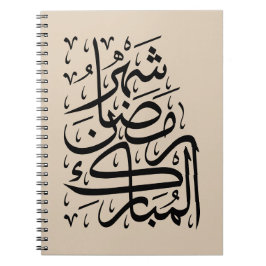 شَهْرُ
رَمَضَانَ
المُبَارَك